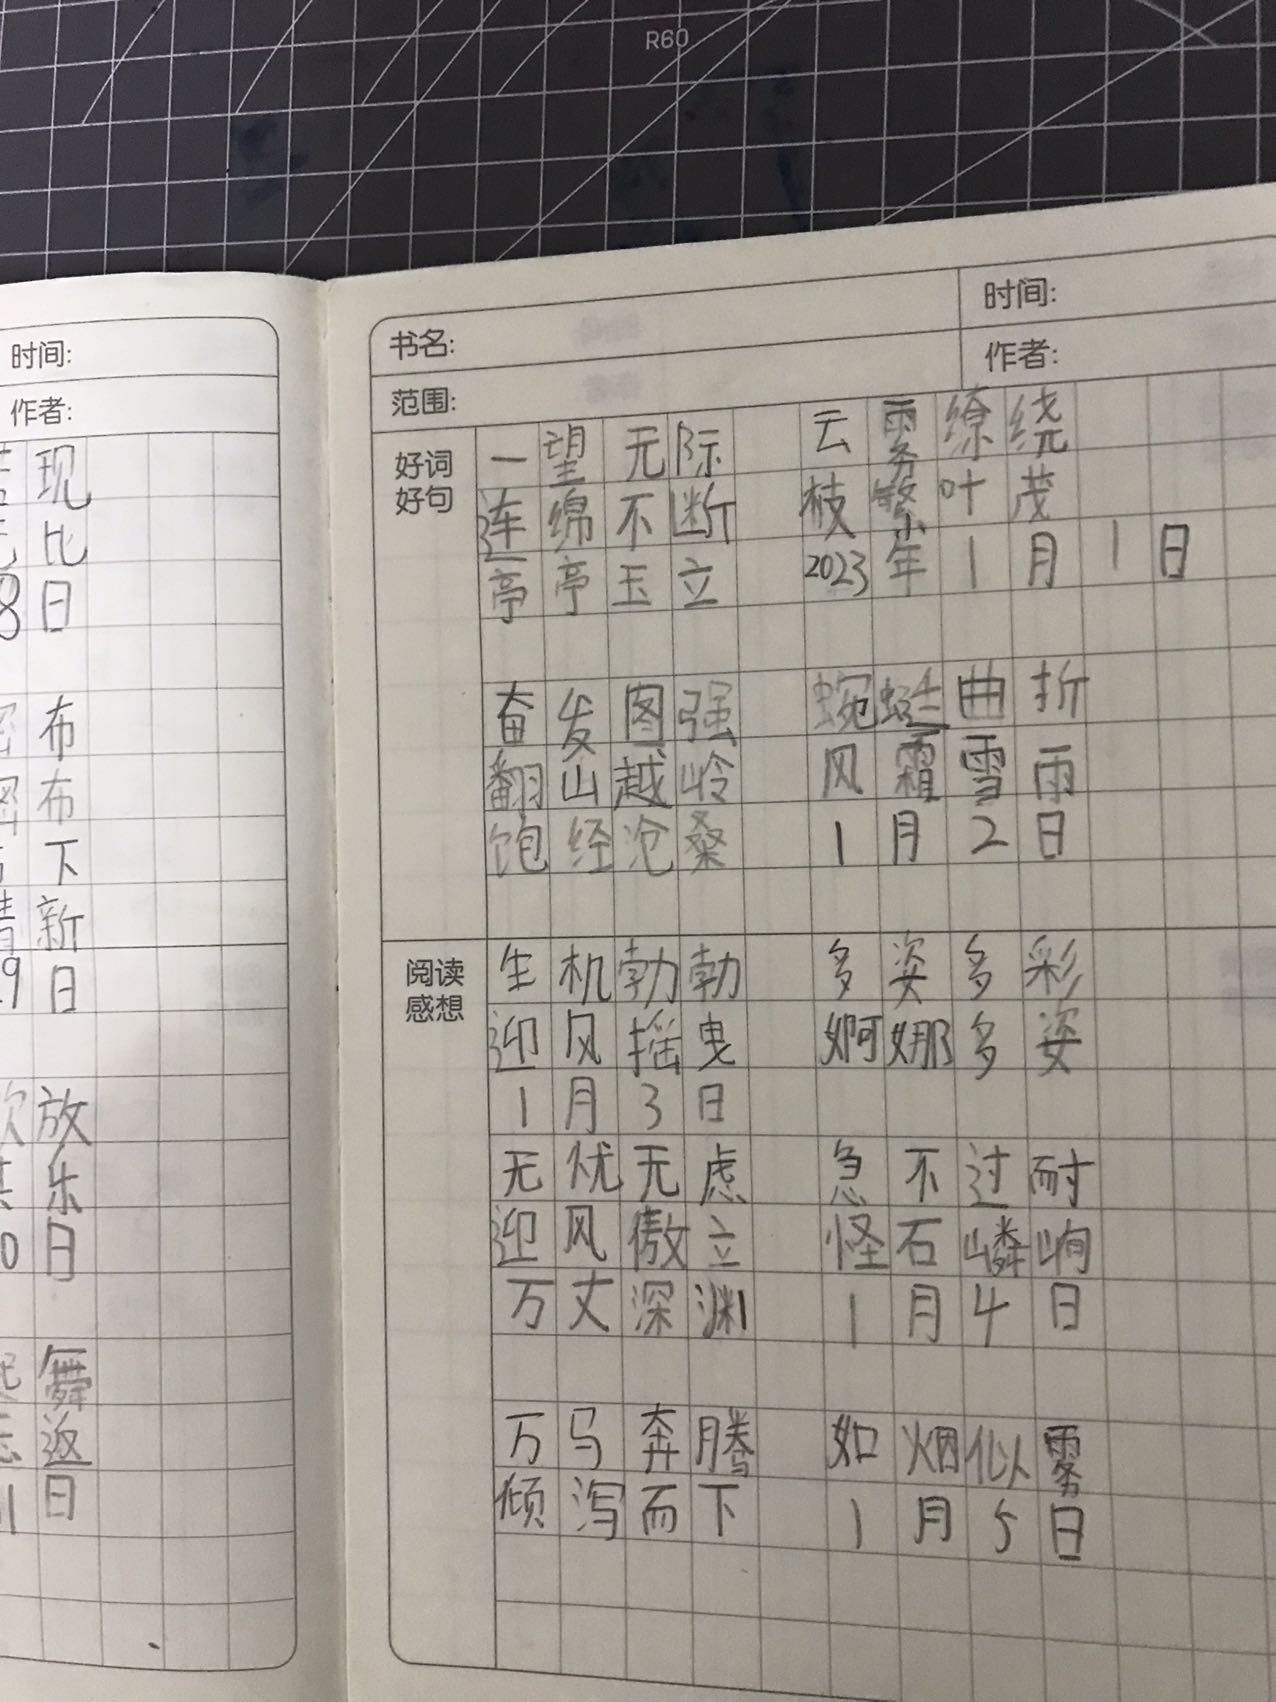 R60
时间:
作者:
现
比
8日
布
布
下
新
9日
放
乐
0日
舞
返
1日
书名:
时间:
范围:
作者:
好词
好句
一望无际 云雾缭绕
连绵不断 枝繁叶茂
亭亭玉立 2023年1月1日
奋发图强 蜿蜒曲折
翻山越岭 风霜雪雨
饱经沧桑 1月2日
阅读
感想
生机勃勃 多姿多彩
迎风摇曳 婀娜多姿
1月3日
无忧无虑 急不过耐
迎风傲立 怪石嶙峋
万丈深渊 1月4日
万马奔腾 如烟似雾
倾泻而下 1月5日